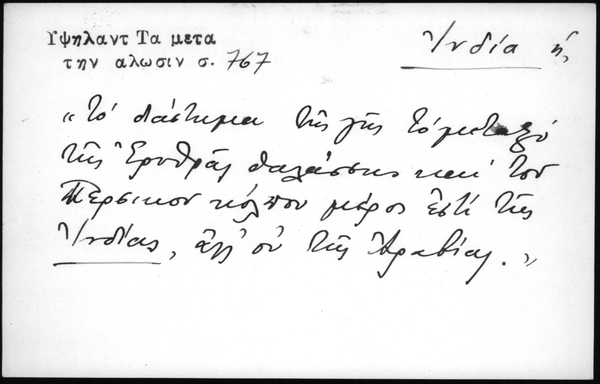 Ὑψηλαντ Τα μετα
την αλωσιν σ. 767
Ἰνδία ἡ,
«τὸ διάστημα τῆς γῆς τὸ μεταξὺ
τῆς Ἐρυθρᾶς θαλάσσης καὶ τοῦ
Περσικοῦ κόλπου μέρος ἐστὶ τῆς
Ἰνδίας, ἀλλ' οὐ τῆς Ἀραβίας.»